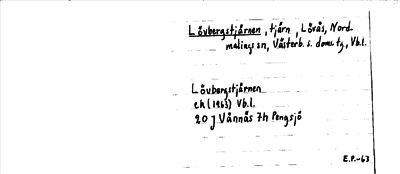 Lövbergstjärnen, tjärn, Lövås, Nord-
malings sn, Västerb. s. doms. tg, Vb.l.
Lövbergstjärnen
ek (1963) Vb.l.
20 J Vännäs 7h Pengsjö
E.P.-63